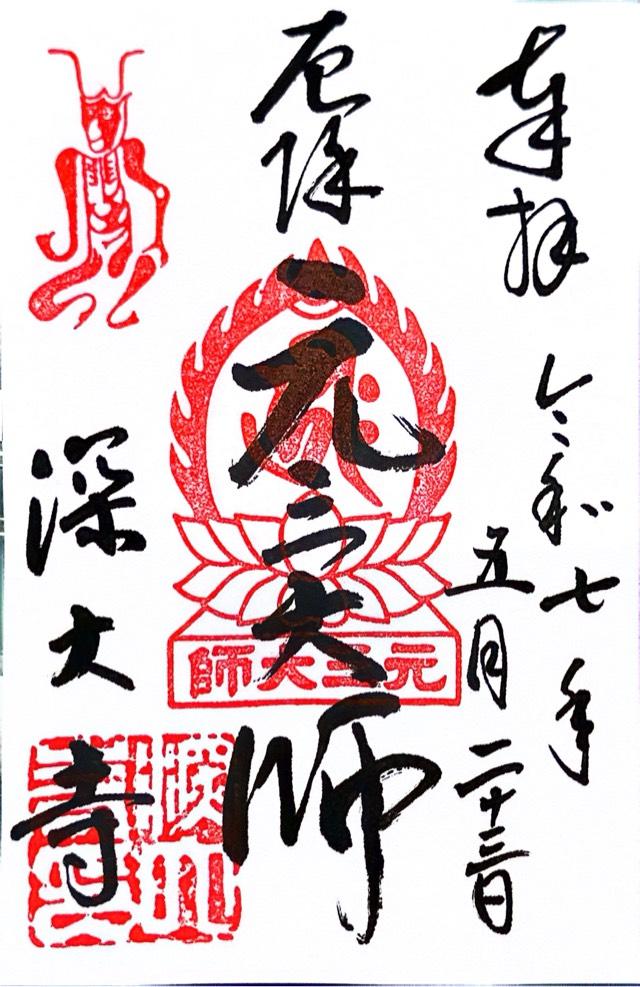 奉拝
令和七年
五月二十三日
厄除
元三大師
元三大師
深大寺